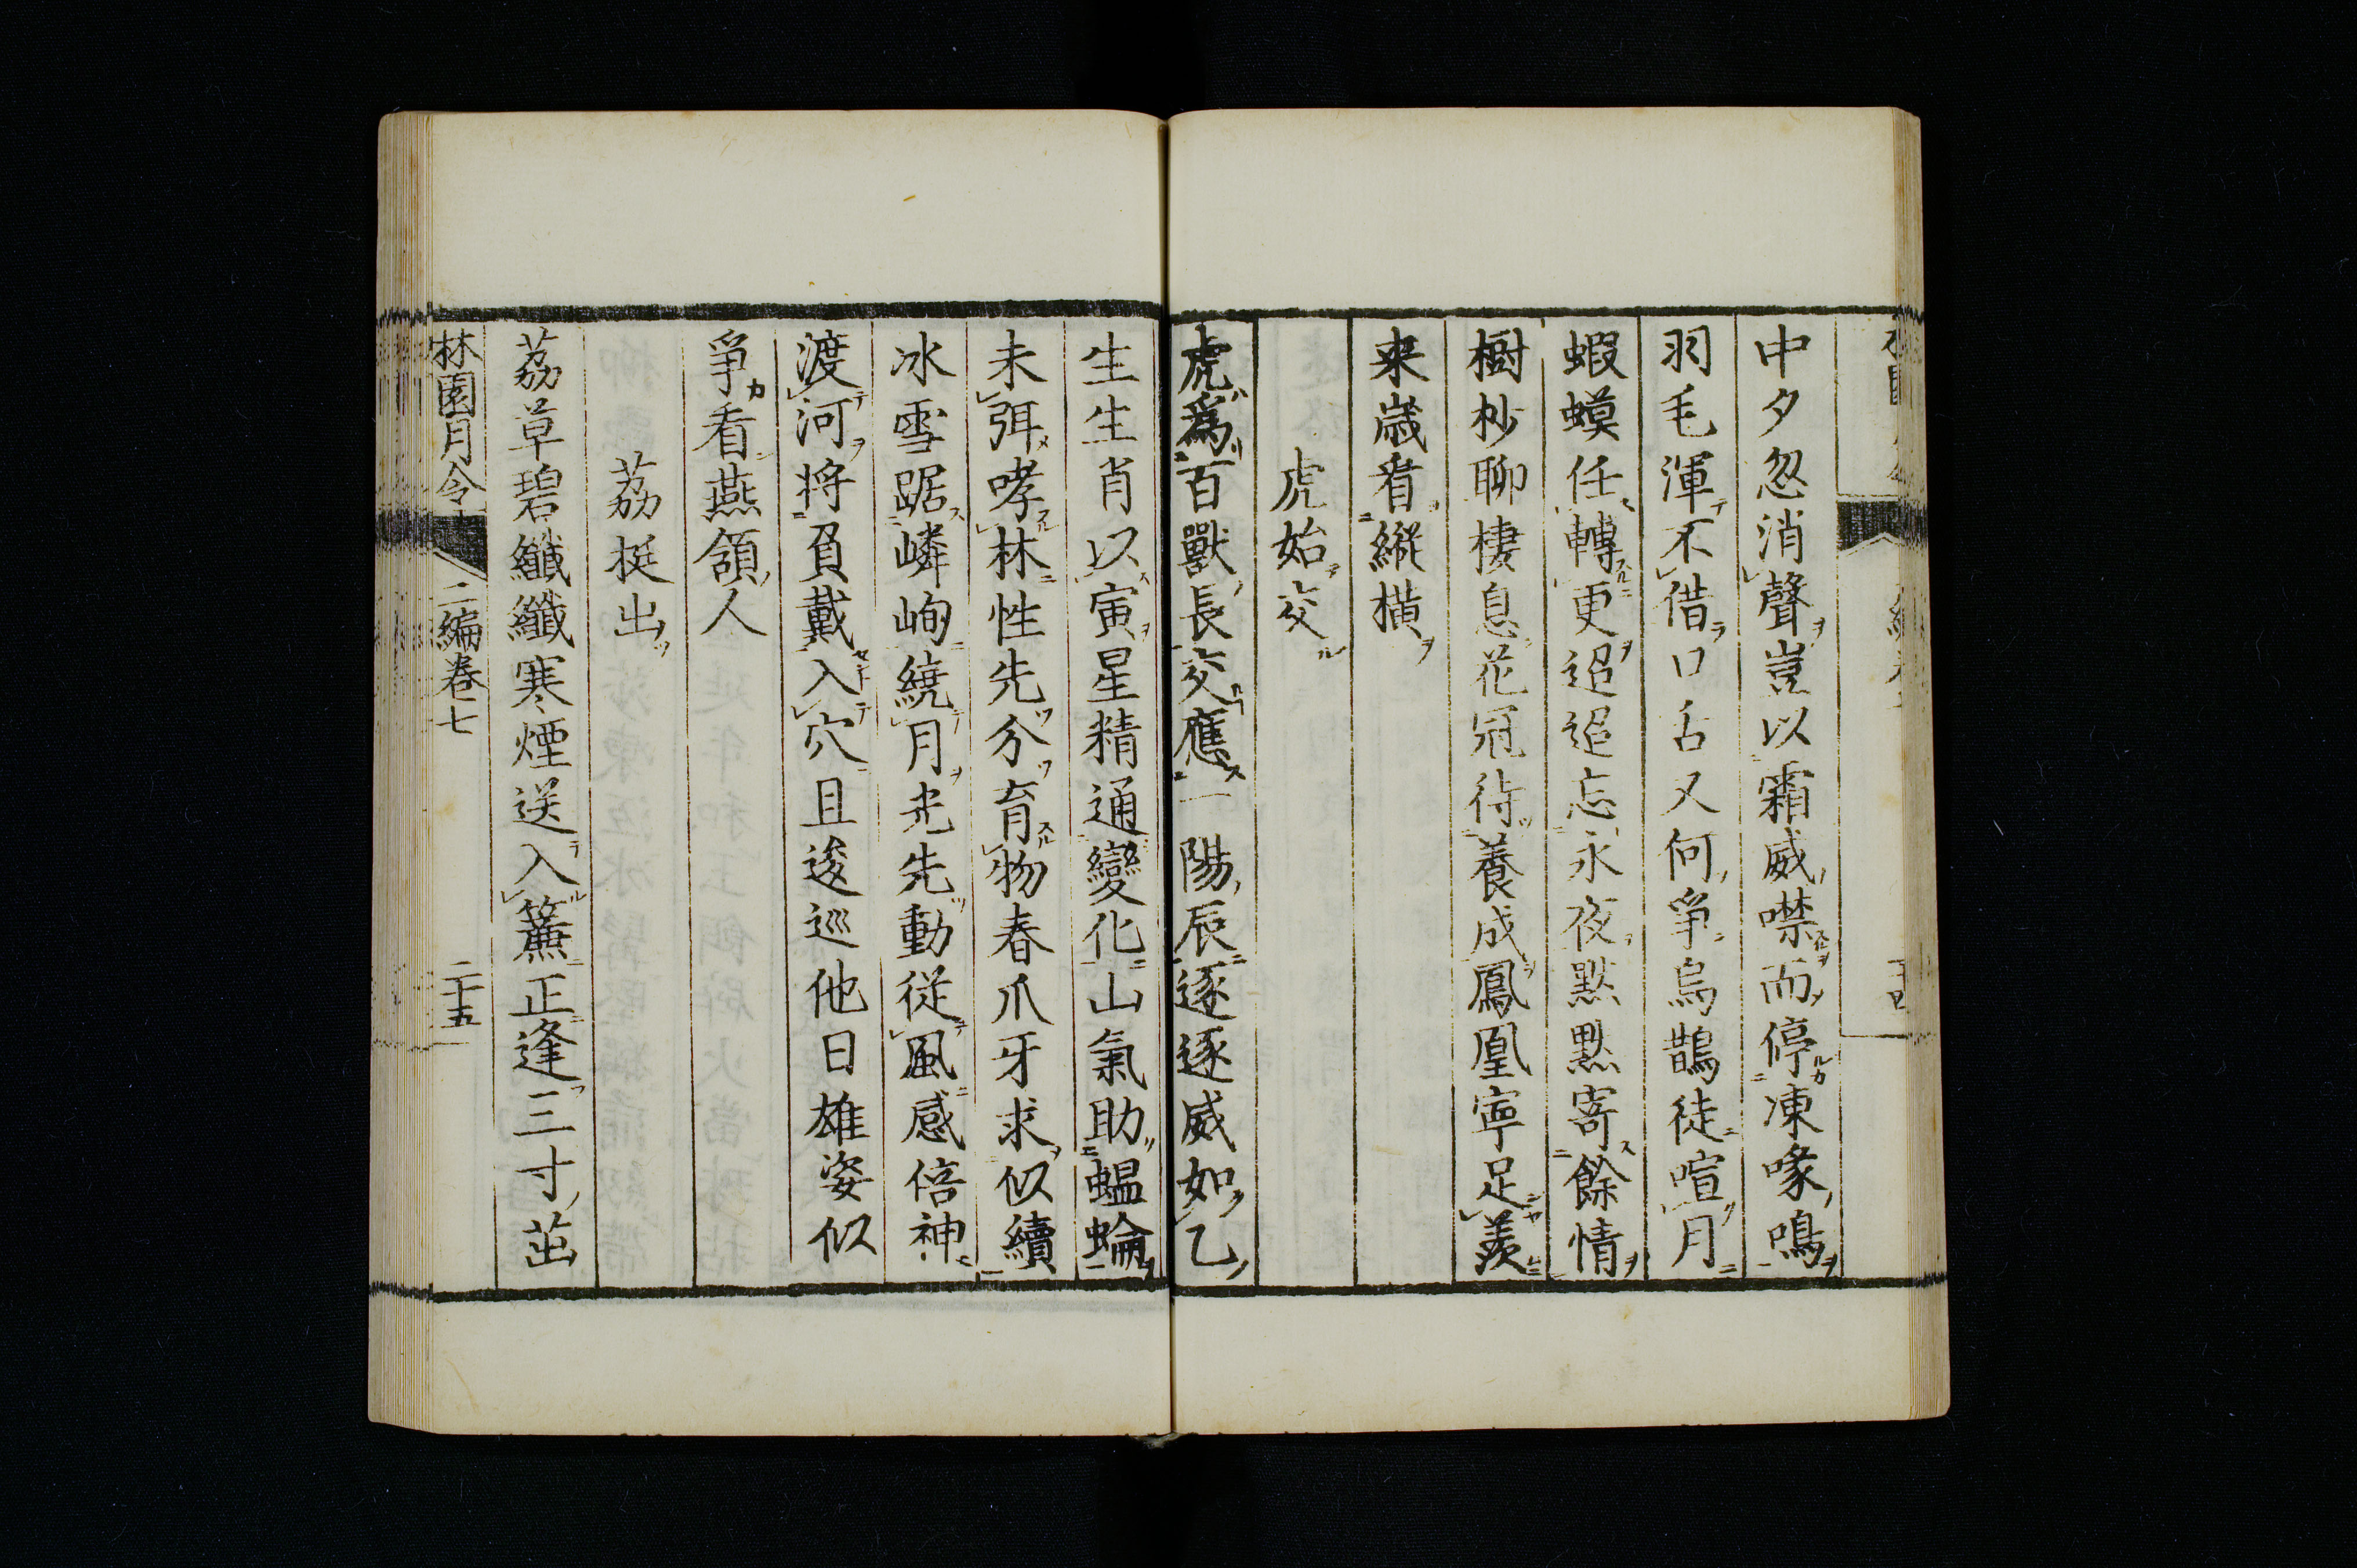 中夕忽消聲豈以霜威噤而停凍喙鳴
羽毛渾不借口舌又何爭烏鵲徒喧月
蝦蟆任轉更迢迢忘永夜默默寄餘情
樹杪聊棲息花冠待養成鳳凰寧足羨
来歳看縱橫
虎始交
虎爲百獸長交應一陽辰逐逐威如乙
生生肖以寅星精通變化山氣助蝹蜦
未弭哮林性先分育物春爪牙求似續
冰雪踞嶙峋繞月光先動從風感倍神
渡河將負戴入穴且逡巡他日雄姿似
爭看燕頷人
荔挺出
荔草碧纖纖寒煙送入簾正逢三寸茁
林園月令 二編卷七 二十五